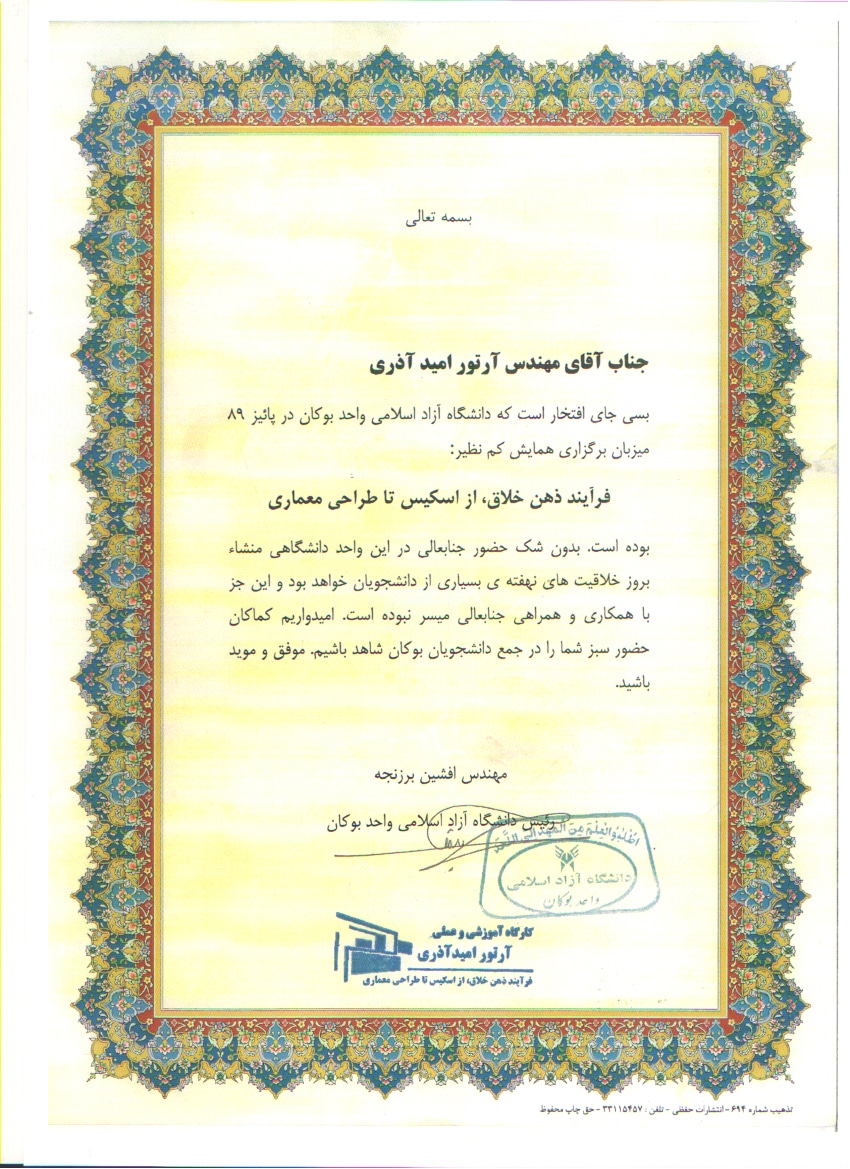 بسمه تعالی
جناب آقای مهندس آرتور امید آذری
بسی جای افتخار است که دانشگاه آزاد اسلامی واحد بوکان در پائیز ۸۹
میزبان برگزاری همایش کم نظیر:
فرآیند ذهن خلاق، از اسکیس تا طراحی معماری
بوده است. بدون شک حضور جنابعالی در این واحد دانشگاهی منشاء
بروز خلاقیت های نهفته ی بسیاری از دانشجویان خواهد بود و این جز
با همکاری و همراهی جنابعالی میسر نبوده است. امیدواریم کماکان
حضور سبز شما را در جمع دانشجویان بوکان شاهد باشیم. موفق و موید
باشید.
مهندس افشین برزنجه
رئیس دانشگاه آزاد اسلامی واحد بوکان
اُطْلُبُوا العِلْمَ مِنَ المَهْدِ اِلَی اللَّحْد
دانشگاه آزاد اسلامی
واحد بوکان
کارگاه آموزشی و عملی
آرتور امیدآذری
فرآیند ذهن خلاق، از اسکیس تا طراحی معماری
تذهیب شماره ۶۹۴ - انتشارات حفظی - تلفن : ۳۳۱۱۵۴۵۷ - حق چاپ محفوظ